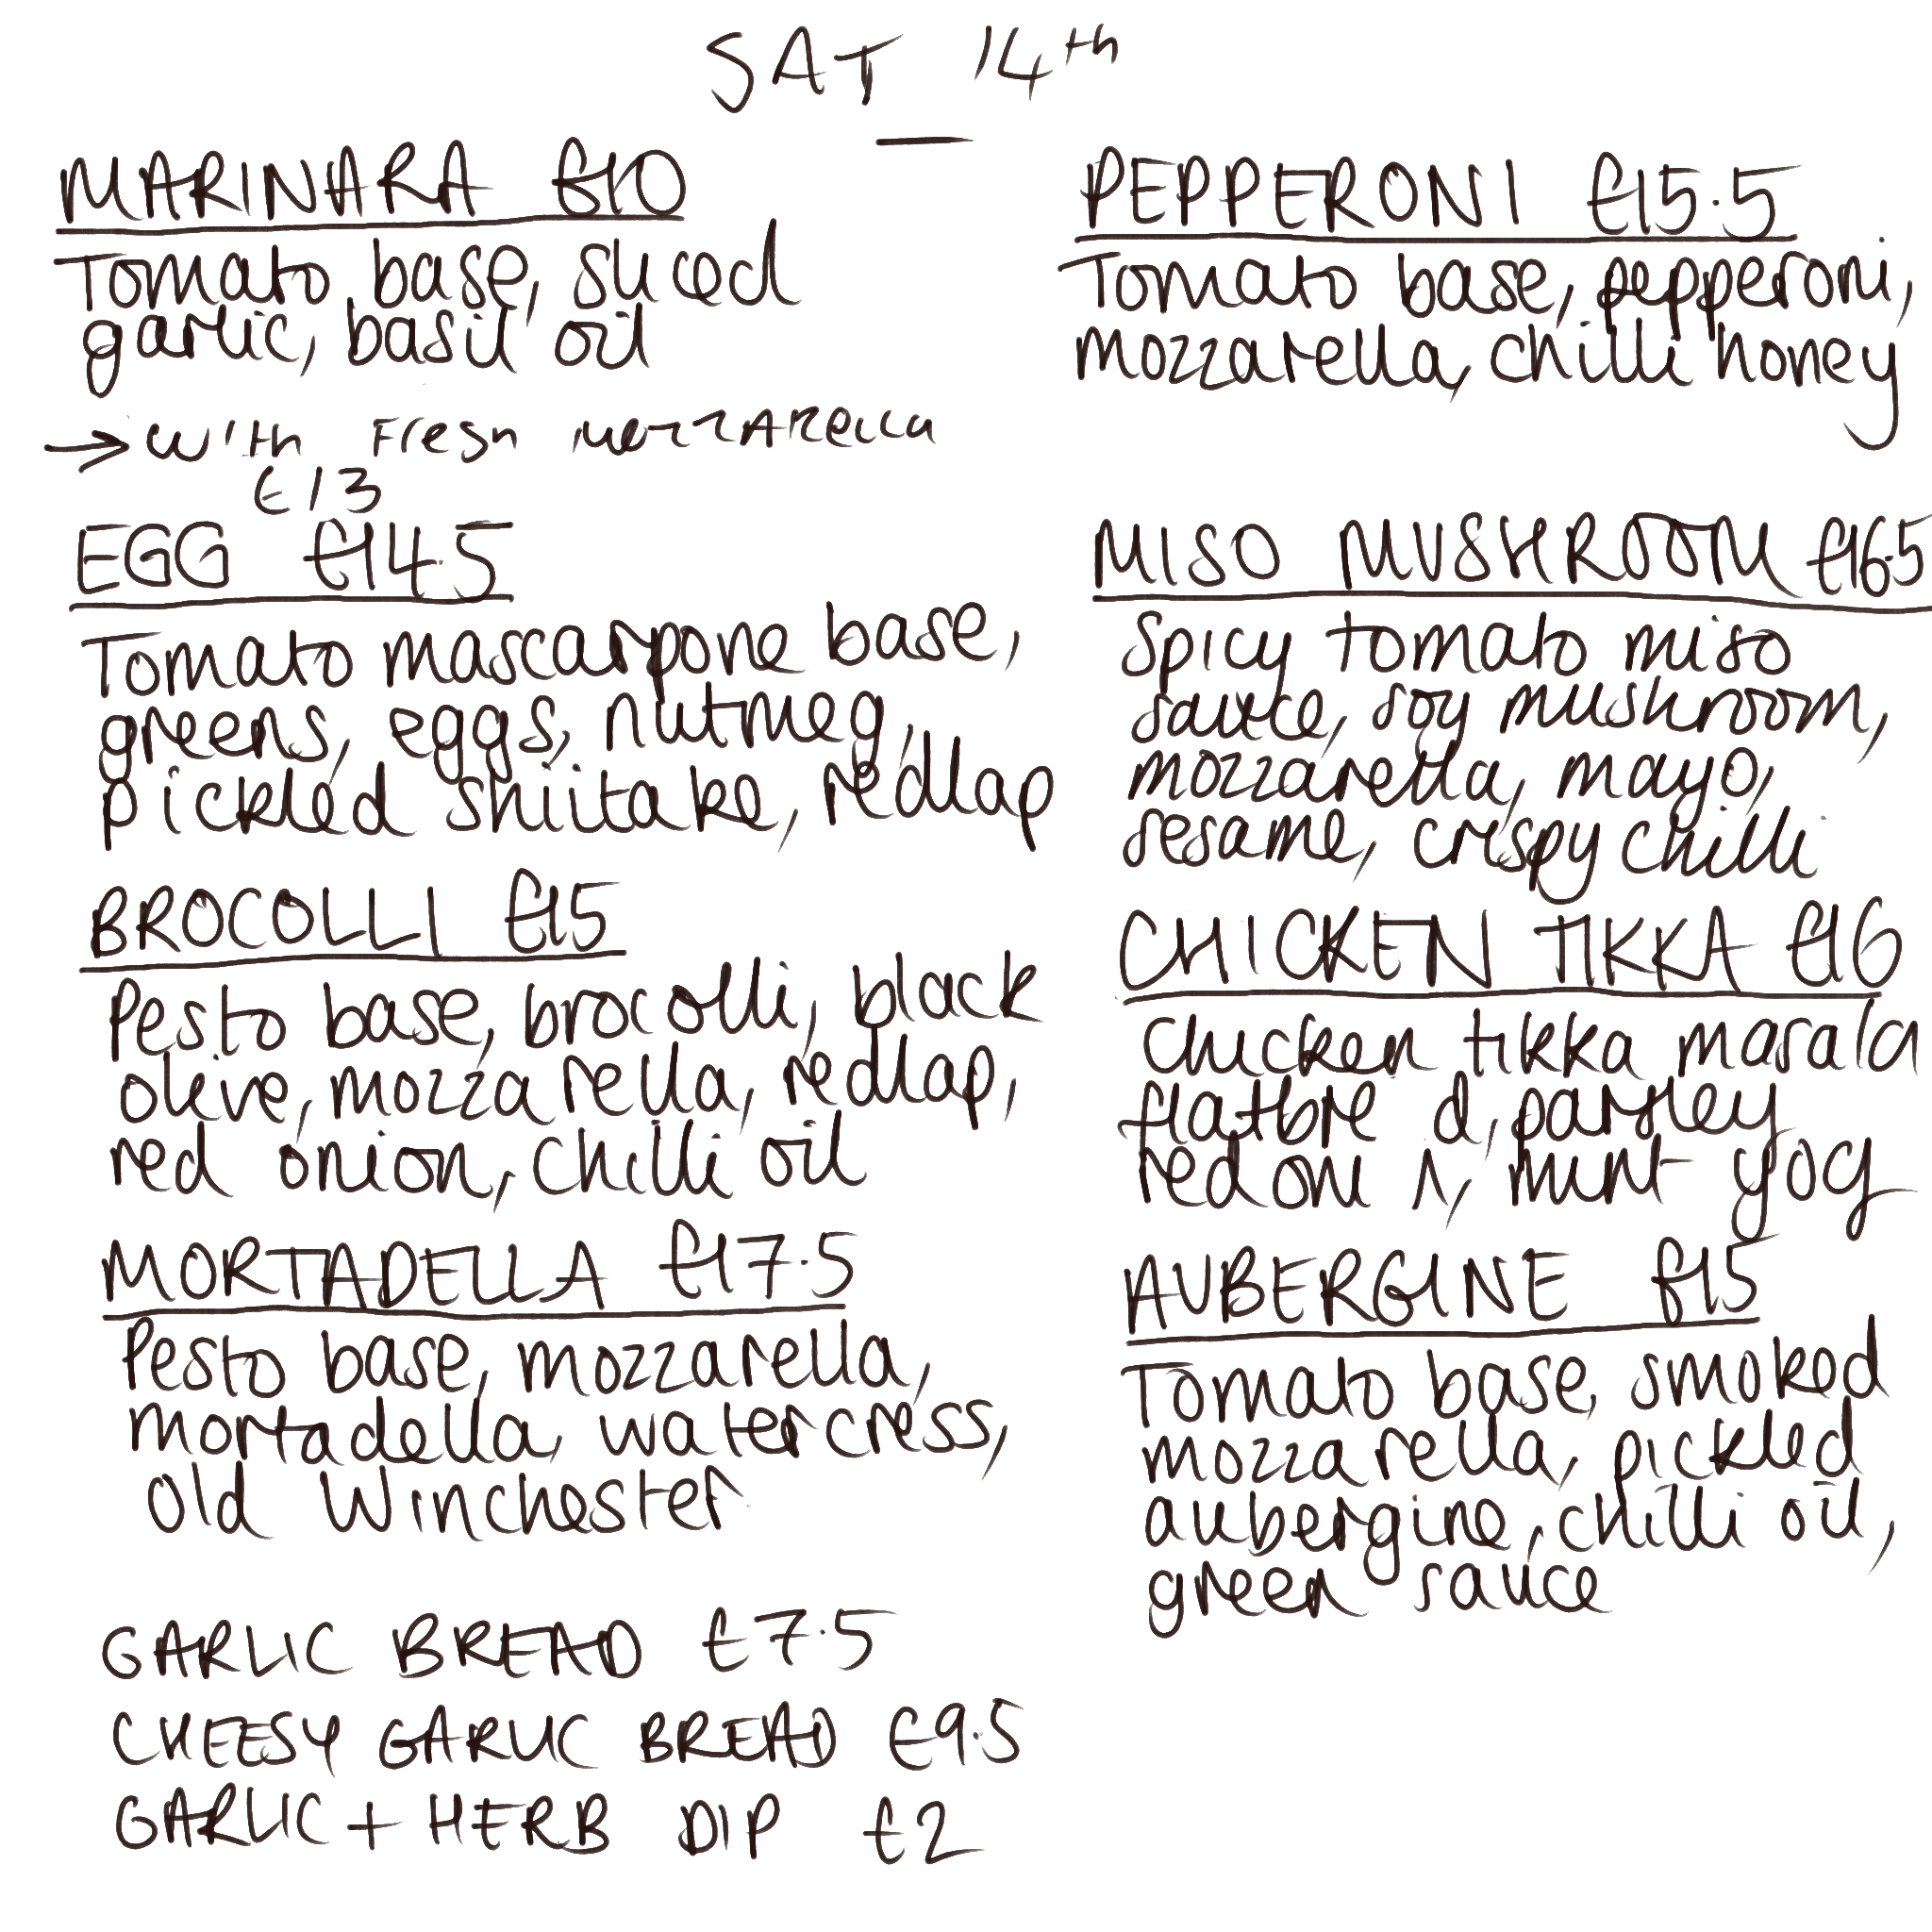 SAT 14th
MARINARA £10
Tomato base, sliced
garlic, basil oil
→ with Fresh MOZZARELLA
£13
EGG £14.5
Tomato mascarpone base,
greens, eggs, nutmeg,
pickled shiitake, redlap
BROCOLLI £15
Pesto base, brocolli, black
olive, mozzarella, redlap,
red onion, chilli oil
MORTADELLA £17.5
Pesto base, mozzarella,
mortadella, watercress,
Old Winchester
GARLIC BREAD £7.5
CHEESY GARLIC BREAD £9.5
GARLIC + HERB DIP £2
PEPPERONI £15.5
Tomato base, pepperoni,
mozzarella, chilli honey
MISO MUSHROOM £16.5
Spicy tomato miso
sauce, soy mushroom,
mozzarella, mayo,
sesame, crispy chilli
CHICKEN TIKKA £16
Chicken tikka masala
flatbre d, parsley
red oni n, mint yog
AUBERGINE £15
Tomato base, smoked
mozzarella, pickled
aubergine, chilli oil,
green sauce